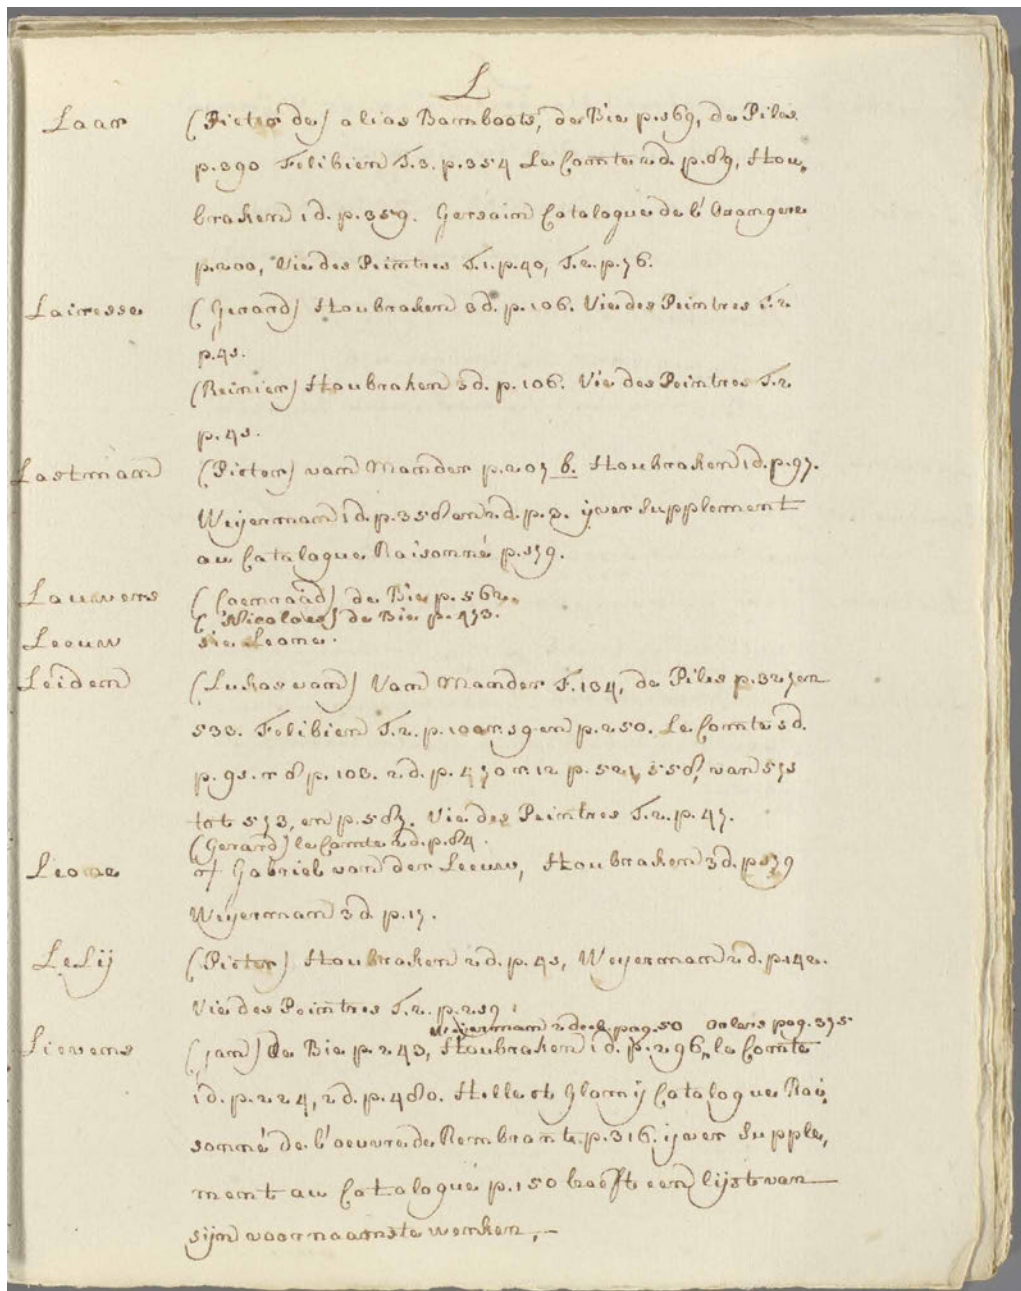 L
Laar (Pieter de) alias Bamboots, de Bie p.169, de Piles
p.390 Felibien T.3. p.354 Le Comte 2d. p.89, Hou,
braken 1d. p.359. Gersain Catalogue de l'Orangere
p.200, Vie des Peintres T.1. p.40, T.2. p.76.
Lairesse (Gerard) Houbraken 3d. p.106. Vie des Peintres T.2
p.43.
(Reinier) Houbraken 3d. p.106. Vie des Peintres T.2.
p.43.
Lastman (Pieter) van Mander p.207 b. Houbraken 1d. p.97.
Weyerman 1d. p.358 en 2d. p.2. yver Supplement
au Catalogue Raisonné p.179.
Lauwers (Coenraad) de Bie p.562.
(Nicolaes) de Bie p.473.
Leeuw sie Leone.
Leiden (Lukas van) Van Mander F.134, de Piles p.327 en
533. Felibien T.2. p.100 en p.250. Le Comte 1d.
p.93. p.103. 2d. p.470 p.521, 558, van 573
tot 573, en p.587. Vie des Peintres T.2. p.47.
(Gerard) le Comte 2d. p.84.
Leone of Gabriel van der Leeuw, Houbraken 3d. p.179
Weyerman 3d. p.17.
LeLij (Pieter) Houbraken 2d. p.43, Weyerman 2d. p.142.
Vie des Peintres T.2. p.219
Weyerman 2 deel. pag.50 Orlers pag.375
Lievens (jan) de Bie p.243, Houbraken 1d. p.296, le Comte
1d. p.224, 2d. p.480. Helle et Glomij Catalogue Rai,
sonné de l'oeuvre de Rembrant. p.316. yver Supple,
ment au Catalogue p.150 heeft een lijst van
sijn voornaamste werken,